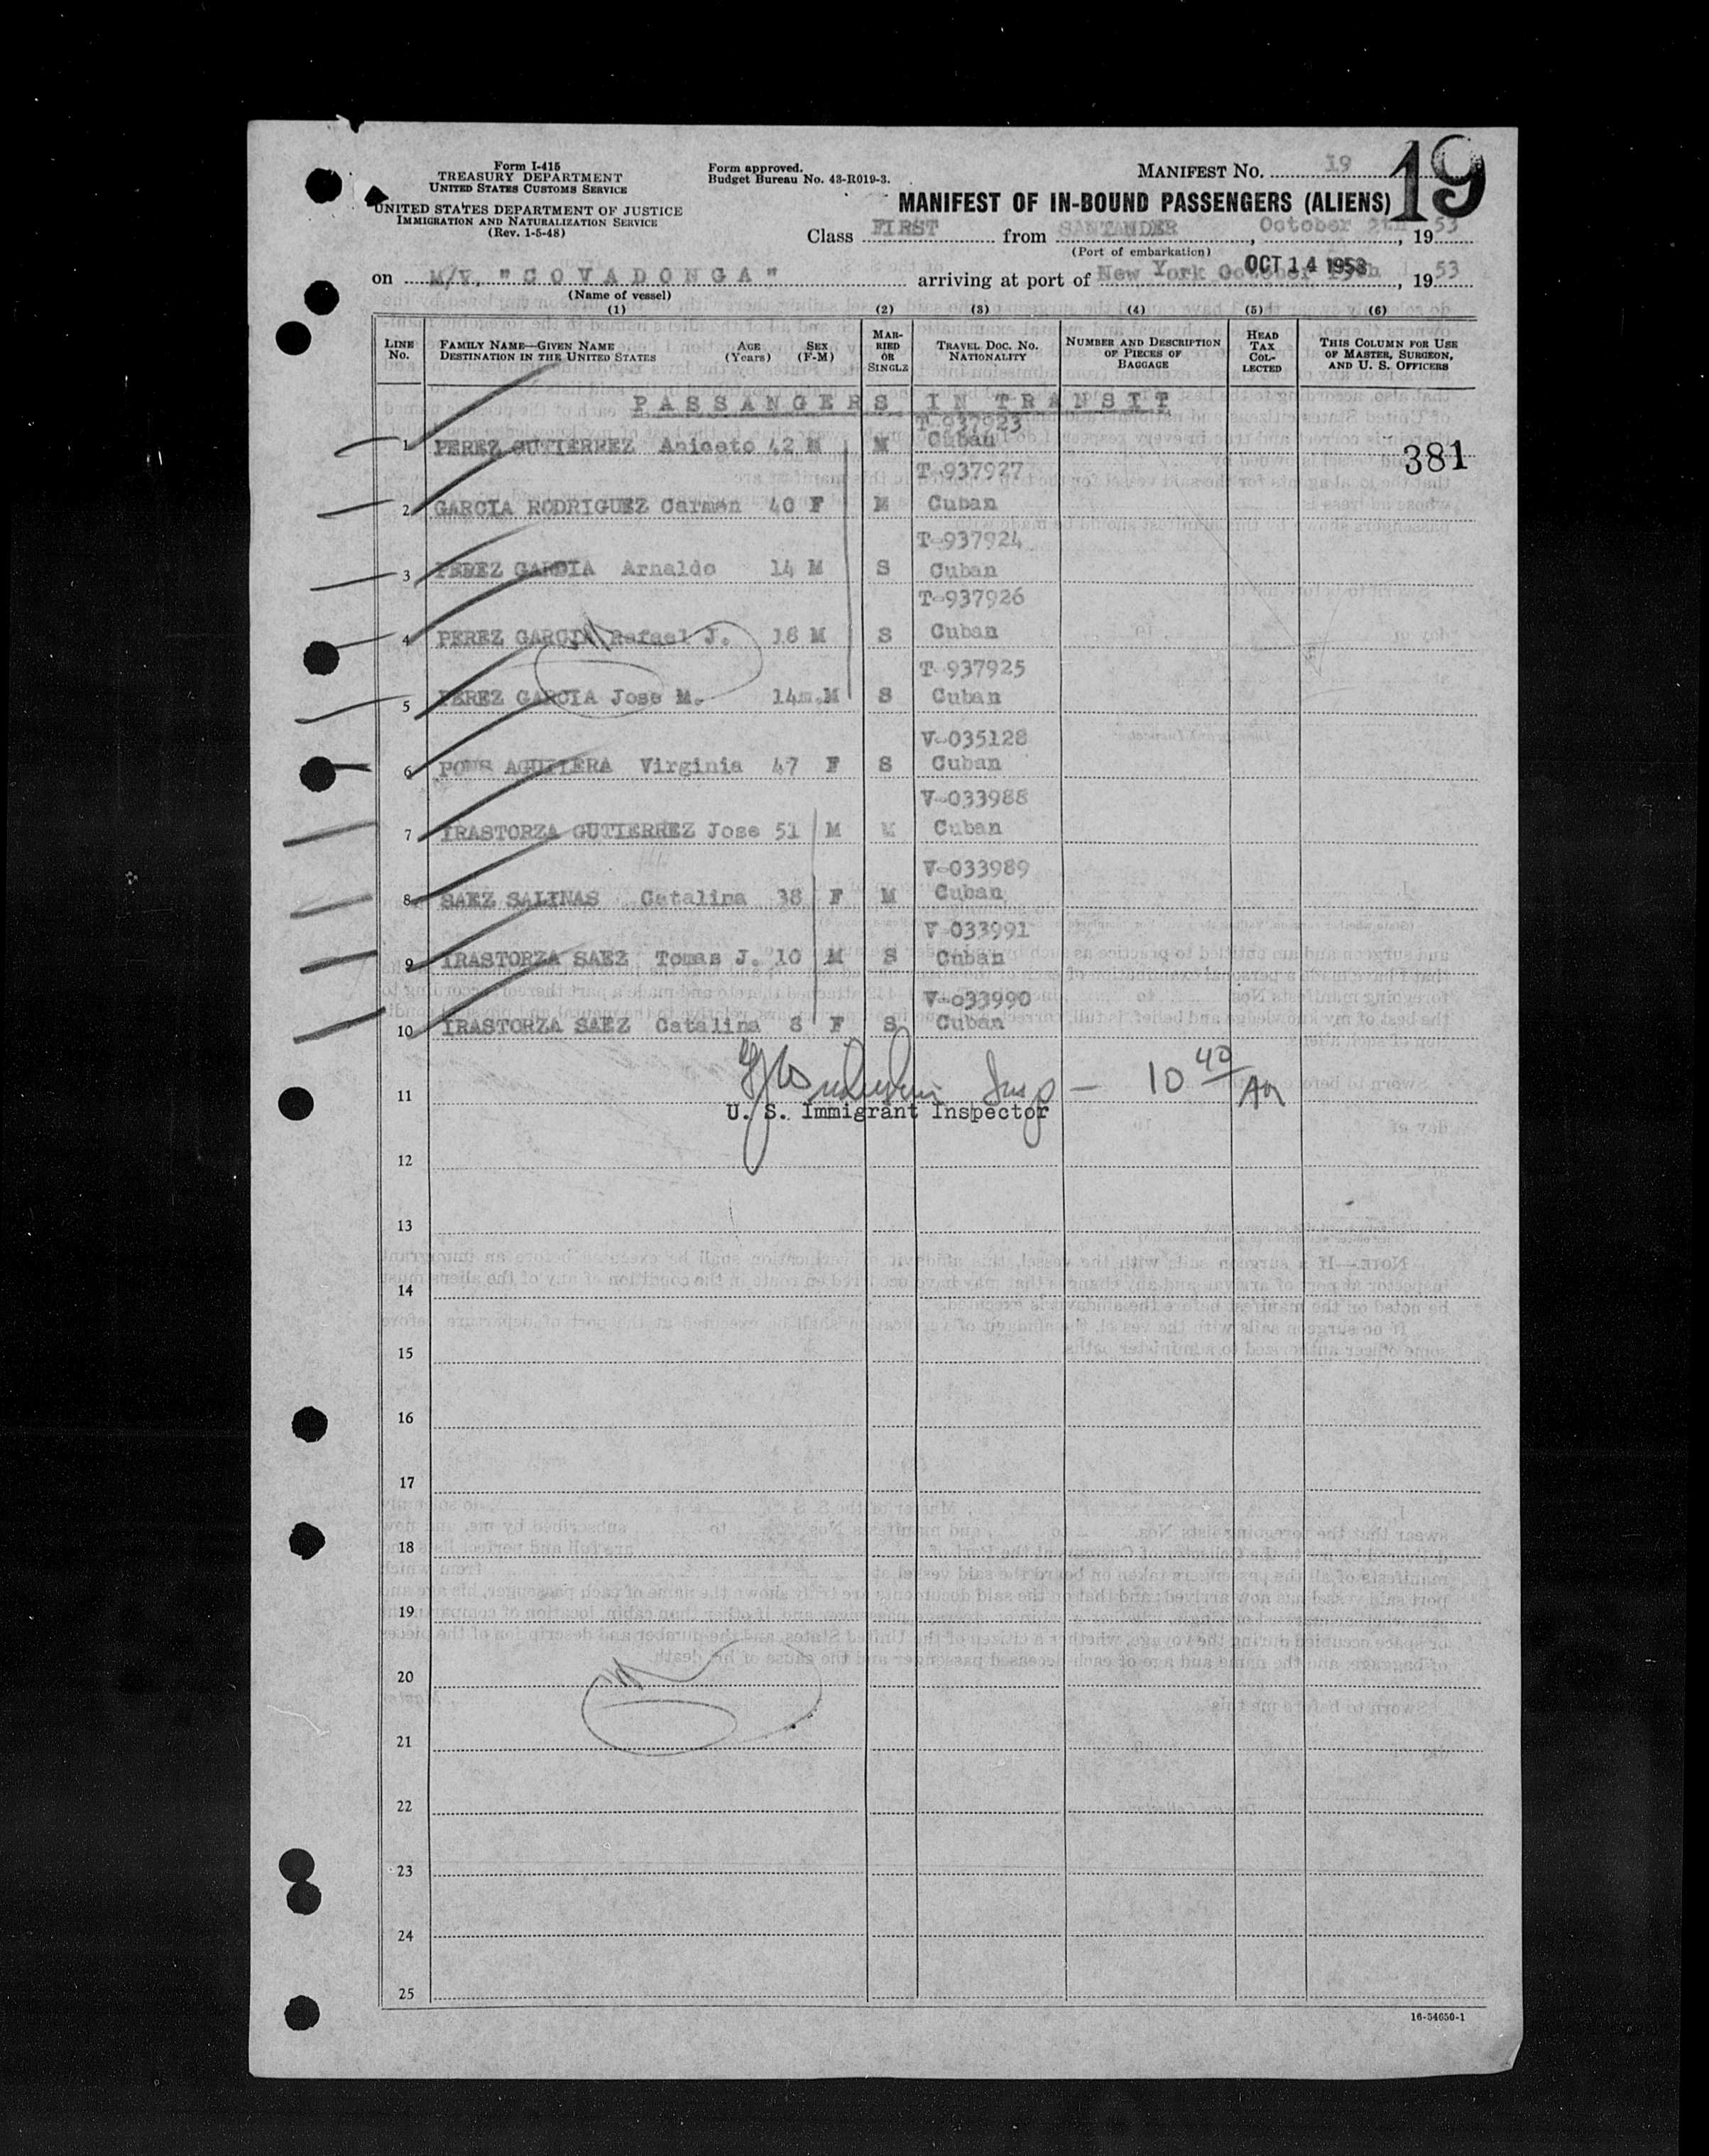 Form I-415
TREASURY DEPARTMENT
UNITED STATES CUSTOMS SERVICE
UNITED STATES DEPARTMENT OF JUSTICE
IMMIGRATION AND NATURALIZATION SERVICE
(Rev. 1-5-48)
Form approved.
Budget Bureau No. 43-R019-3.
MANIFEST No. 19
19
MANIFEST OF IN-BOUND PASSENGERS (ALIENS)
Class FIRST from SANTANDER, October 2th, 1953
(Port of embarkation)
on M/V. "COVADONGA" arriving at port of New York October 13th, 1953
OCT 14 1953
(Name of vessel)
(1) (2) (3) (4) (5) (6)
LINE No. FAMILY NAME—GIVEN NAME DESTINATION IN THE UNITED STATES AGE (Years) SEX (F-M) MARRIED OR SINGLE TRAVEL DOC. NO. NATIONALITY NUMBER AND DESCRIPTION OF PIECES OF BAGGAGE HEAD TAX COLLECTED THIS COLUMN FOR USE OF MASTER, SURGEON, AND U. S. OFFICERS
PASSANGERS IN TRANSIT
T-937923
1 PEREZ GUTIERREZ Aniceto 42 M M Cuban
381
T-937927
2 GARCIA RODRIGUEZ Carmen 40 F M Cuban
T-937924
3 PEREZ GARCIA Arnaldo 14 M S Cuban
T-937926
4 PEREZ GARCIA Rafael J. 18 M S Cuban
T-937925
5 PEREZ GARCIA Jose M. 14m. M S Cuban
V-035128
6 PONS AGUILERA Virginia 47 F S Cuban
V-033988
7 IRASTORZA GUTIERREZ Jose 51 M M Cuban
V-033989
8 SAEZ SALINAS Catalina 38 F M Cuban
V-033991
9 IRASTORZA SAEZ Tomas J. 10 M S Cuban
V-033990
10 IRASTORZA SAEZ Catalina 8 F S Cuban
Insp — 10 40 AM
11 U. S. Immigrant Inspector
12
13
14
15
16
17
18
19
20
21
22
23
24
25
16-54650-1